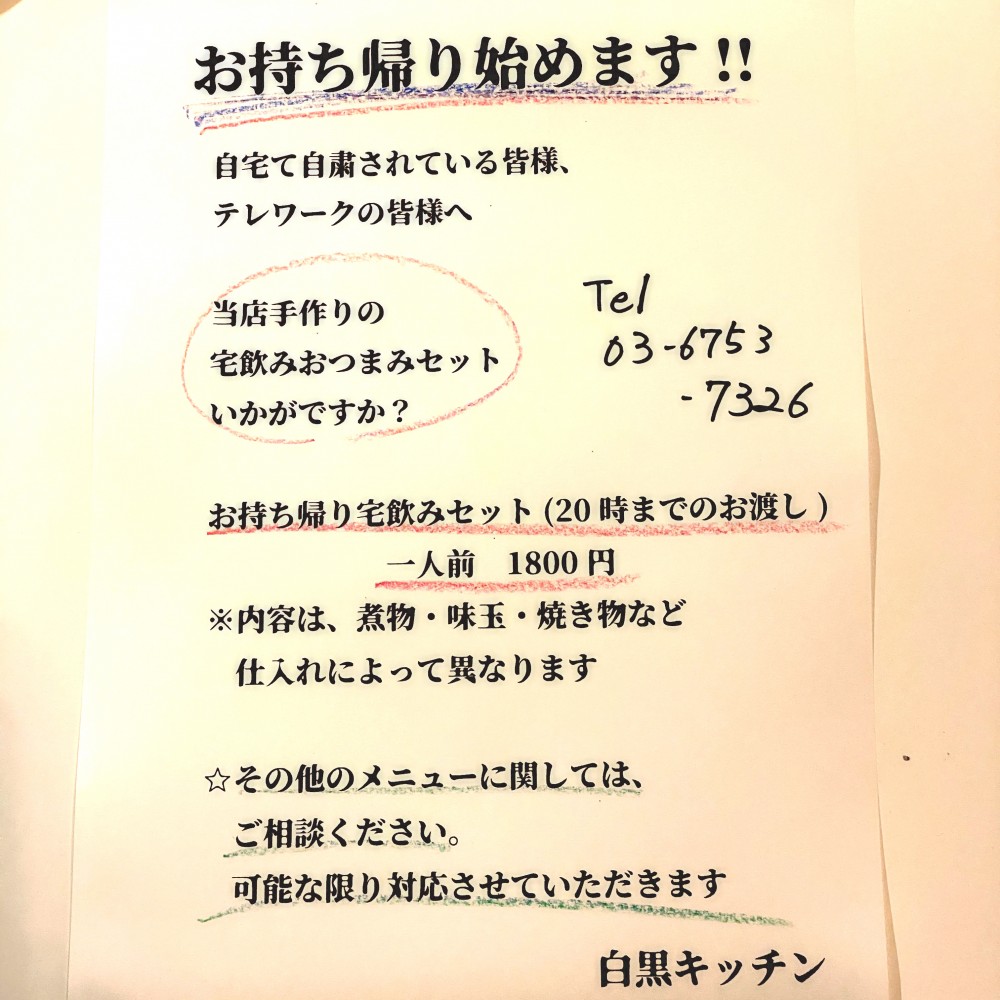 お持ち帰り始めます!!
自宅て自粛されている皆様、
テレワークの皆様へ
当店手作りの
宅飲みおつまみセット
いかがですか？
Tel
03-6753
-7326
お持ち帰り宅飲みセット(20時までのお渡し)
一人前　1800円
※内容は、煮物・味玉・焼き物など
仕入れによって異なります
☆その他のメニューに関しては、
ご相談ください。
可能な限り対応させていただきます
白黒キッチン